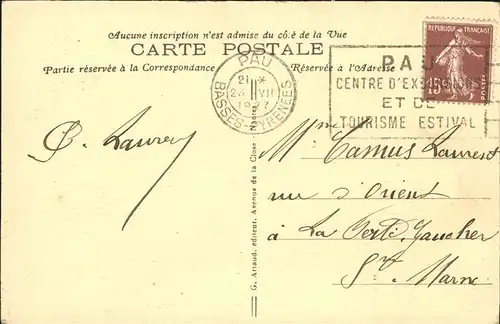 Aucune inscription n'est admise du côté de la Vue
CARTE POSTALE
Partie réservée à la Correspondance
Réserve à l'Adresse
PAU
21 *
25 VII
1927
BASSES-PYRENEES
PAU
CENTRE D'EXCURSIONS
ET DE
TOURISME ESTIVAL
REPUBLIQUE FRANÇAISE
15c
POSTES
G. Artaud, éditeur, Avenue de la Close - Nantes
Mme Camus Laurent
rue d'Orient
à La Ferté Gaucher
Sne Marne